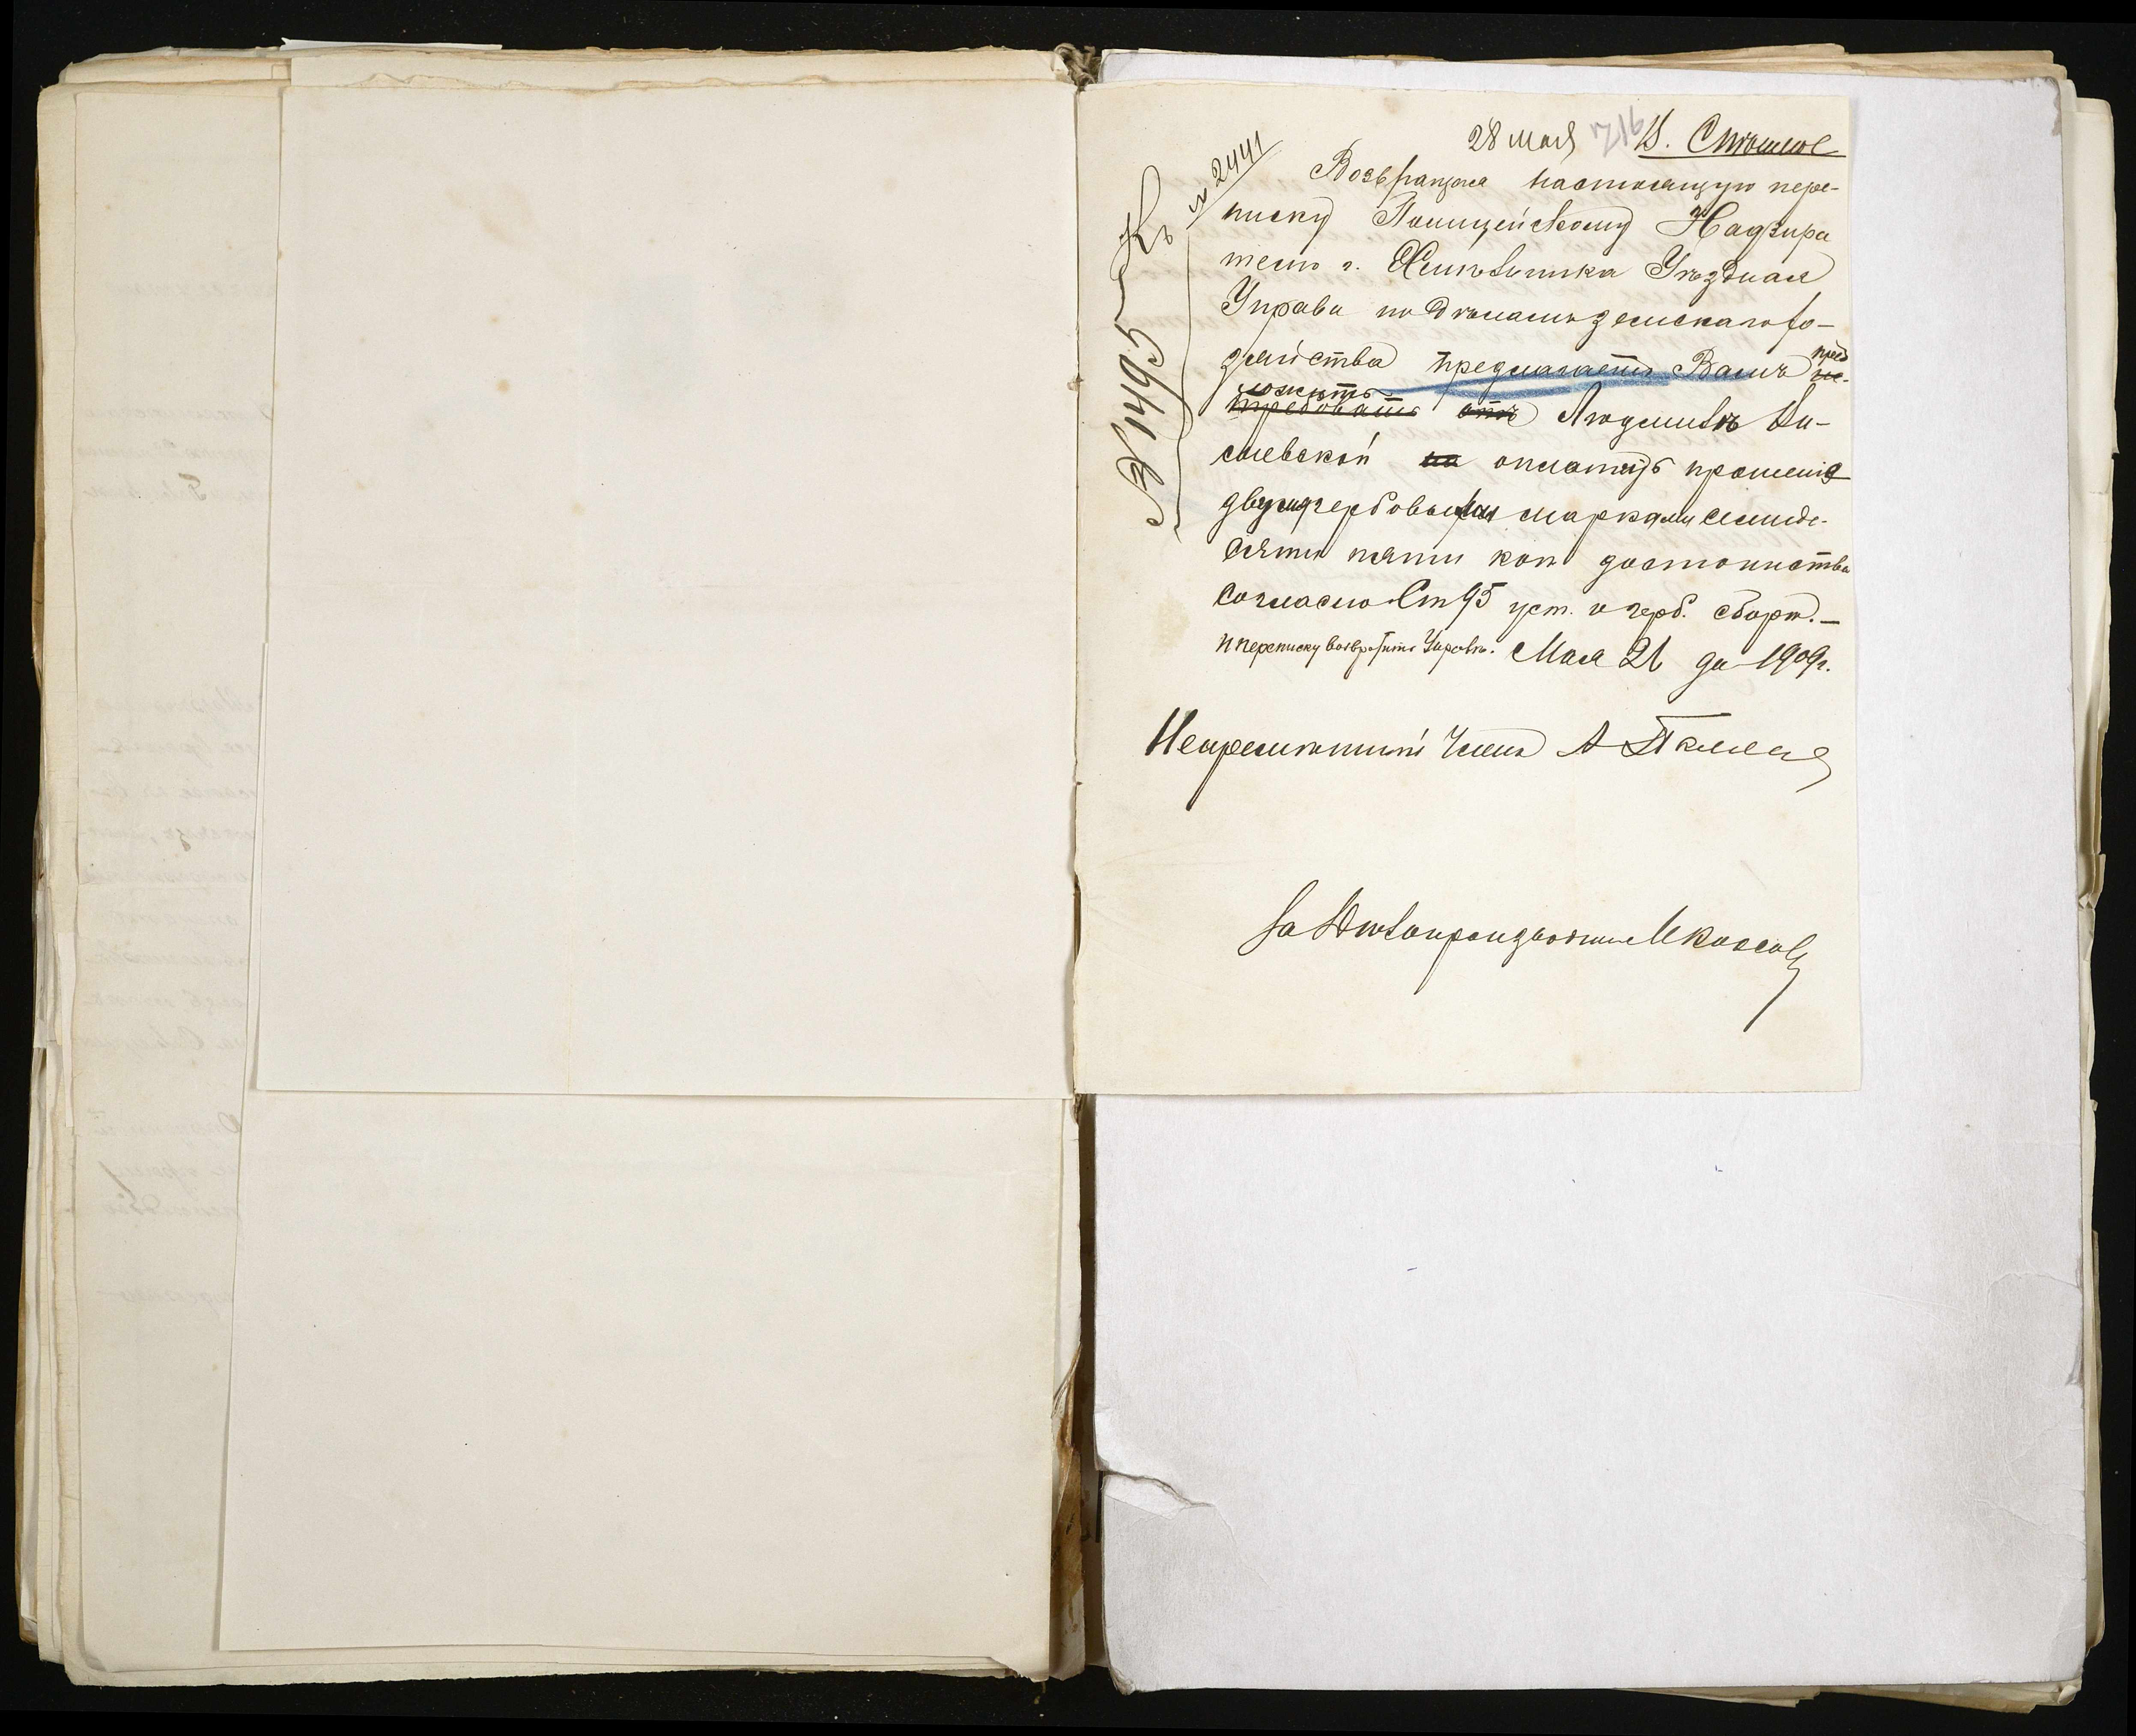 28 мая 716 В. Спѣшное
Къ № 2441
№ 1495
Возвращая настоящую пере-
писку Полицейскому Надзира
телю г. Хмѣльника Уѣздная
Управа по дѣламъ земскаго хо-
зяйства предлагаетъ Вамъ пред
ложить
требовать отъ Людмилѣ Ва-
силевской на оплатить прошенія
двумя гербовыми марками семиде-
сяти пяти коп достоинства
согласно Ст 95 уст. о герб. сборѣ. —
и переписку возвратить Управѣ. Мая 21 дня 1909 г.
Непремѣнный Членъ А
За Дѣлопроизводителя